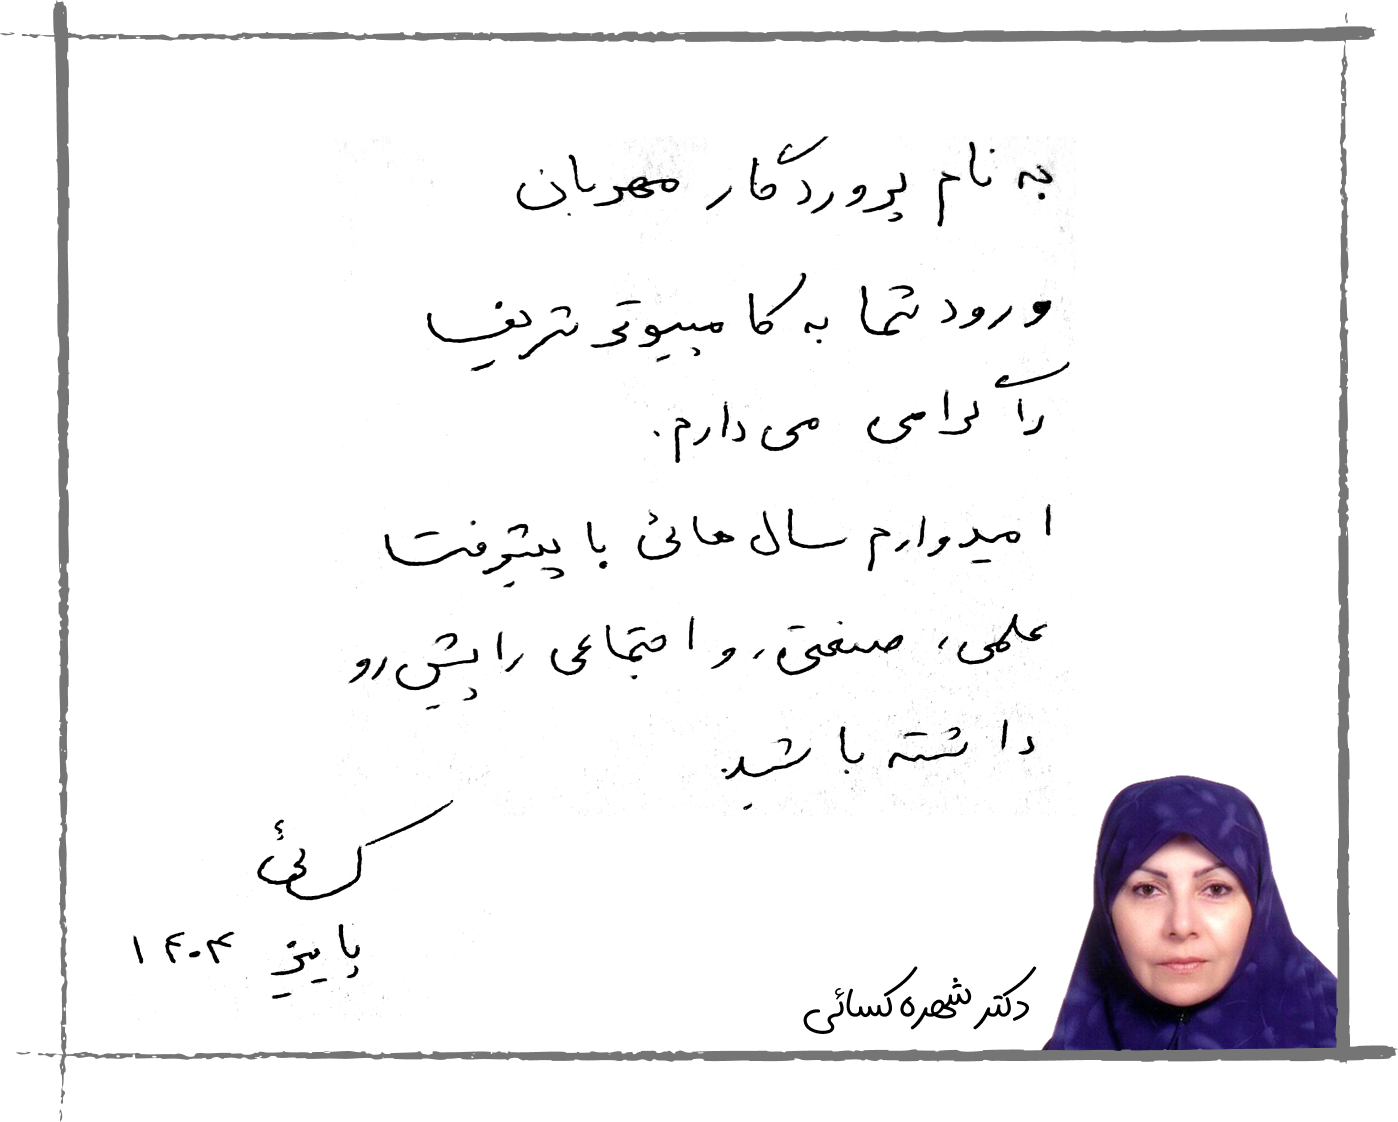 به نام پروردگار مهربان
ورود شما به کامپیوتر شریف
را گرامی می دارم.
امیدوارم سال هائی با پیشرفت
علمی، صنعتی، و اجتماعی را پیش رو
داشته باشید.
کسائی
پاییز ۱۴۰۴
دکتر شهره کسائی